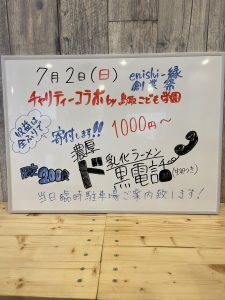 7月2日(日) enishi-縁
創業祭
チャリティーコラボ by 鳥取こども学園
収益は
全ふりして
寄付します!! 1000円〜
濃厚
乳化ラーメン
ド黒電話
限定200食
当日臨時駐車場ご案内致します!